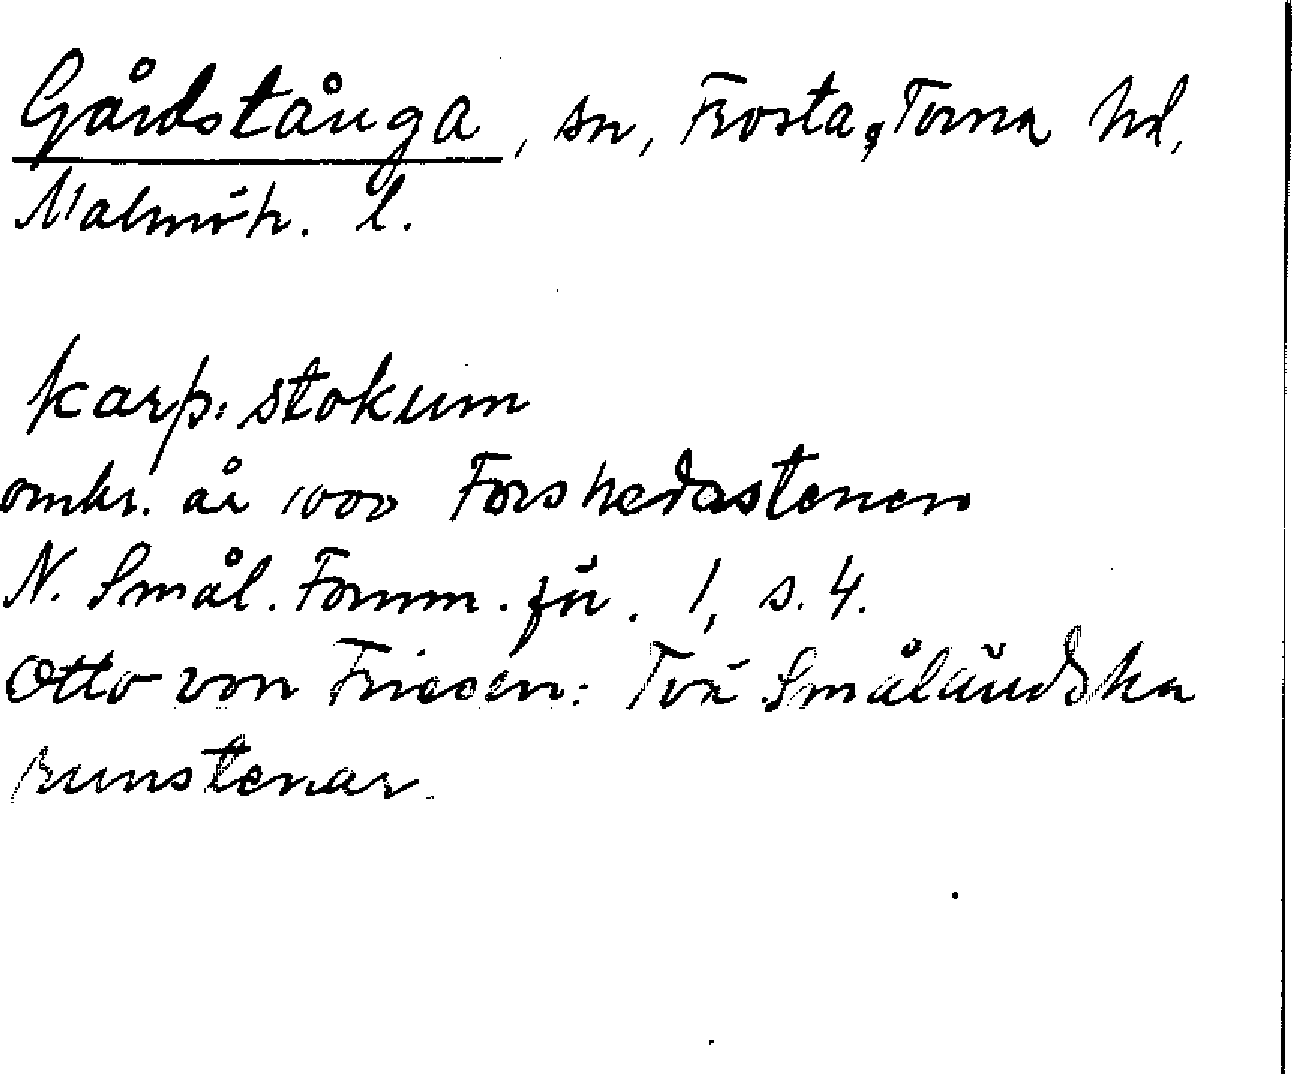 Gårdstånga, sn, Frosta o Torna hd,
Malmöh. l.
karþ:stokum
omkr. år 1000 Forshedastenen
N. Smål. Fornm. för. 1, s. 4.
Otto von Friesen: Två Småländska
runstenar